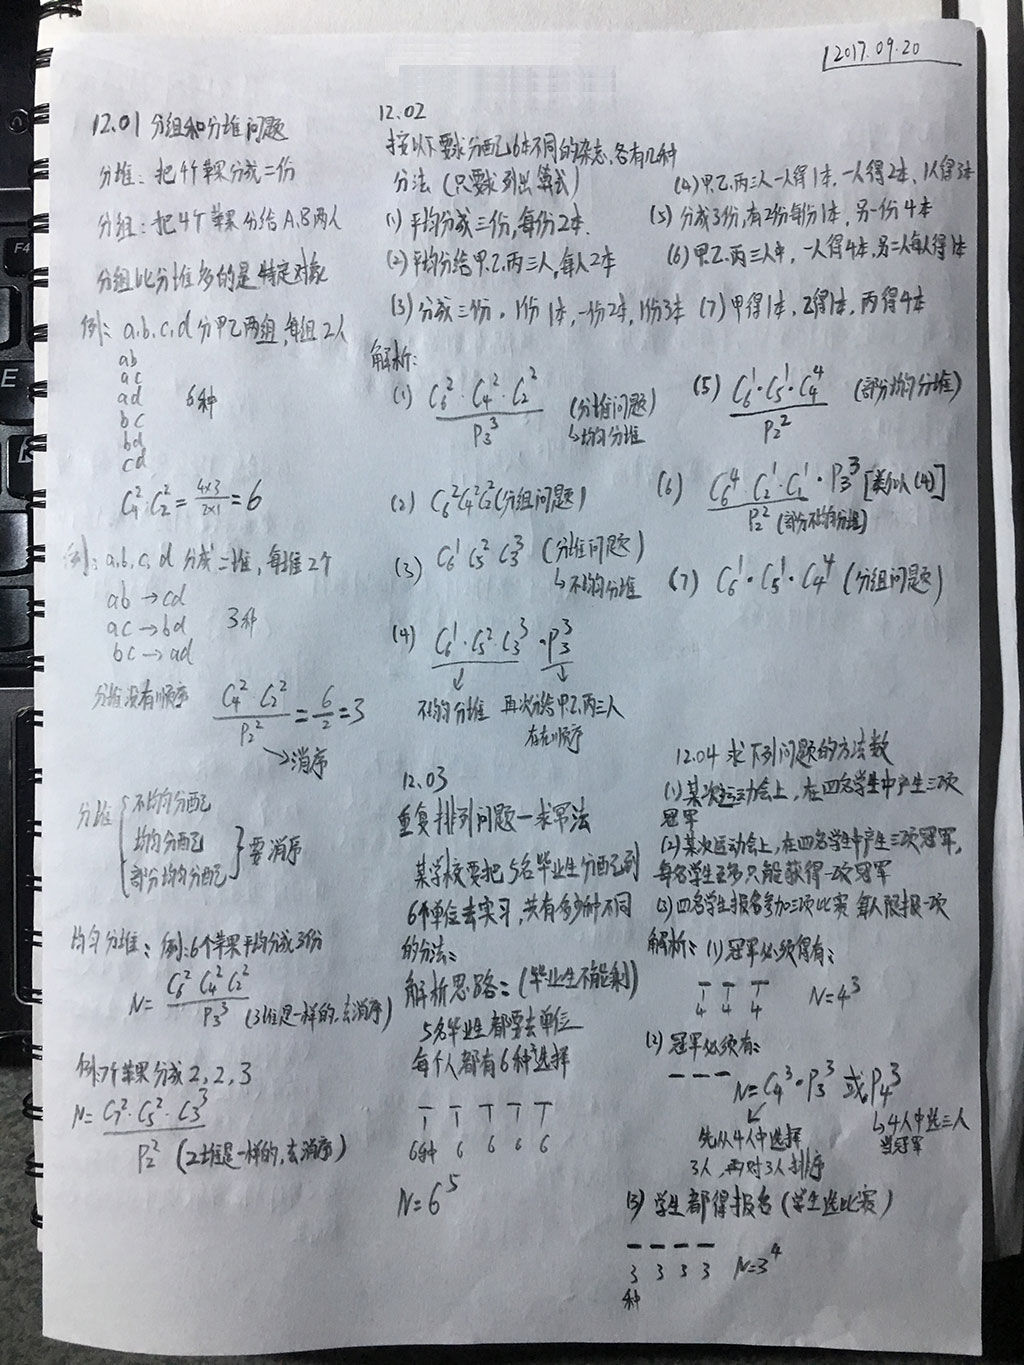 2017.09.20
12.01 分组和分堆问题
分堆：把4个苹果分成二份
分组：把4个苹果分给A.B两人
分组比分堆多的是特定对象
例：a.b.c.d分甲乙两组，每组2人
ab
ac
ad
bc
bd
cd
6种
C₄²·C₂²=4×3/2×1=6
例：a.b.c.d 分成二堆，每堆2个
ab→cd
ac→bd
bc→ad
3种
分堆没有顺序 C₄²·C₂²/P₂²=6/2=3
→消序
分堆{不均匀分配
均匀分配
部分均匀分配}要消序
均匀分堆：例：6个苹果平均分成3份
N=C₆²C₄²C₂²/P₃³（3堆是一样的，去消序）
例:7个苹果分成2，2，3
N=C₇²·C₅²·C₃³/P₂²（2堆是一样的，去消序）
12.02
按以下要求分配6本不同的杂志，各有几种
分法（只要求列出算式）
(1)平均分成三份，每份2本.
(2)平均分给甲.乙.丙三人，每人2本
(3)分成三份，1份1本，一份2本，1份3本
(4)甲.乙.丙三人一人得1本，一人得2本，1人得3本
(5)分成3份，有2份每份1本，另一份4本
(6)甲.乙.丙三人中，一人得4本，另二人每人得1本
(7)甲得1本，乙得1本，丙得4本
解析：
(1) C₆²·C₄²·C₂²/P₃³（分堆问题）
↳均匀分堆
(2) C₆²C₄²C₂²(分组问题)
(3) C₆¹C₅²C₃³（分堆问题）
↳不均匀分堆
(4) C₆¹·C₅²·C₃³·P₃³
不均匀分堆 再次分给甲.乙.丙三人
存在顺序
(5) C₆¹·C₅¹·C₄⁴/P₂²（部分均匀分堆）
(6) C₆⁴·C₂¹·C₁¹/P₂²·P₃³[类似(4)]
(部分不均匀分组)
(7) C₆¹·C₅¹·C₄⁴（分组问题）
12.03
重复排列问题—求幂法
某学校要把5名毕业生分配到
6个单位去实习，共有多少种不同
的分法：
解析思路：（毕业生不能剩）
5名毕业生都要去单位
每个人都有6种选择
6种 6 6 6 6
N=6⁵
12.04 求下列问题的方法数
(1)某次运动会上，在四名学生中产生三项
冠军
(2)某次运动会上，在四名学生中产生三项冠军，
每名学生至多只能获得一项冠军
(3)四名学生报名参加三项比赛 每人限报一项
解析：(1)冠军必须得有：
4 4 4 N=4³
(2)冠军必须有：
N=C₄³·P₃³ 或P₄³
先从4人中选择
3人，再对3人排序
↳4人中选三人
当冠军
(3)学生都得报名（学生选比赛）
3 3 3 3 N=3⁴
种